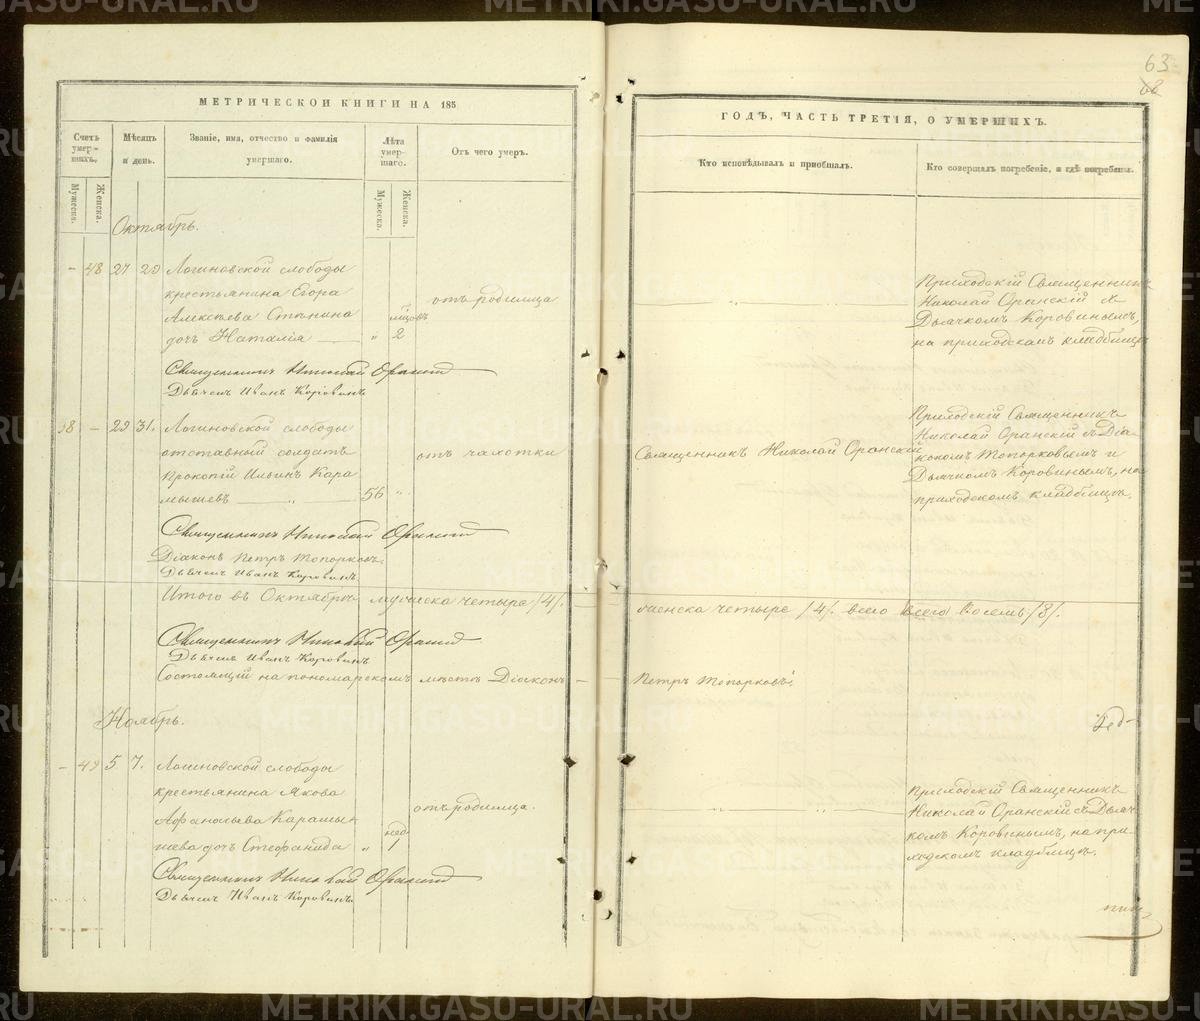 63
68
МЕТРИЧЕСКОЙ КНИГИ НА 185
ГОДЪ, ЧАСТЬ ТРЕТІЯ, О УМЕРШИХЪ.
Счетъ умер-шихъ.
Мѣсяцъ и день.
Званіе, имя, отчество и фамилія умершаго.
Лѣта умер-шаго.
Отъ чего умеръ.
Кто исповѣдывалъ и пріобщалъ.
Кто совершалъ погребеніе, и гдѣ погребены.
Мужеска.
Женска.
Мужеска.
Женска.
Октябрь.
– 48 27 29 Логиновской слободы
крестьянина Егора
Алексѣева Стѣнина
дочь Наталія
мѣсяцовъ
" 2
отъ родимца
Приходскій Священникъ
Николай Оранскій съ
Дьячкомъ Коровинымъ,
на приходскомъ кладбищѣ
Священникъ Николай Оранскій
Дьячекъ Иванъ Коровинъ
38 – 29 31. Логиновской слободы
отставный солдатъ
Прокопій Ильинъ Кара
мышевъ " 56 "
отъ чахотки
Священникъ Николай Оранскій
Приходскій Священникъ
Николай Оранскій съ Діа-
кономъ Топорковымъ и
Дьячкомъ Коровинымъ, на
приходскомъ кладбищѣ.
Священникъ Николай Оранскій
Діаконъ Петръ Топорковъ.
Дьячекъ Иванъ Коровинъ
Итого въ Октябрѣ мужеска четыре /4/. женска четыре /4/. всего всего восемь /8/.
Священникъ Николай Оранскій
Дьячекъ Иванъ Коровинъ
Состоящій на пономарскомъ мѣстѣ Діаконъ Петръ Топорковъ.
Ноябрь.
– 49 5 7. Логиновской слободы
крестьянина Якова
Афанасьева Карамы-
шева дочь Стефанида "
нед.
1
отъ родимца.
Приходскій Священникъ
Николай Оранскій съ Дьяч-
комъ Коровинымъ, на при-
ходскомъ кладбищѣ.
Священникъ Николай Оранскій
Дьячекъ Иванъ Коровинъ
METRIKI.GASO-URAL.RU